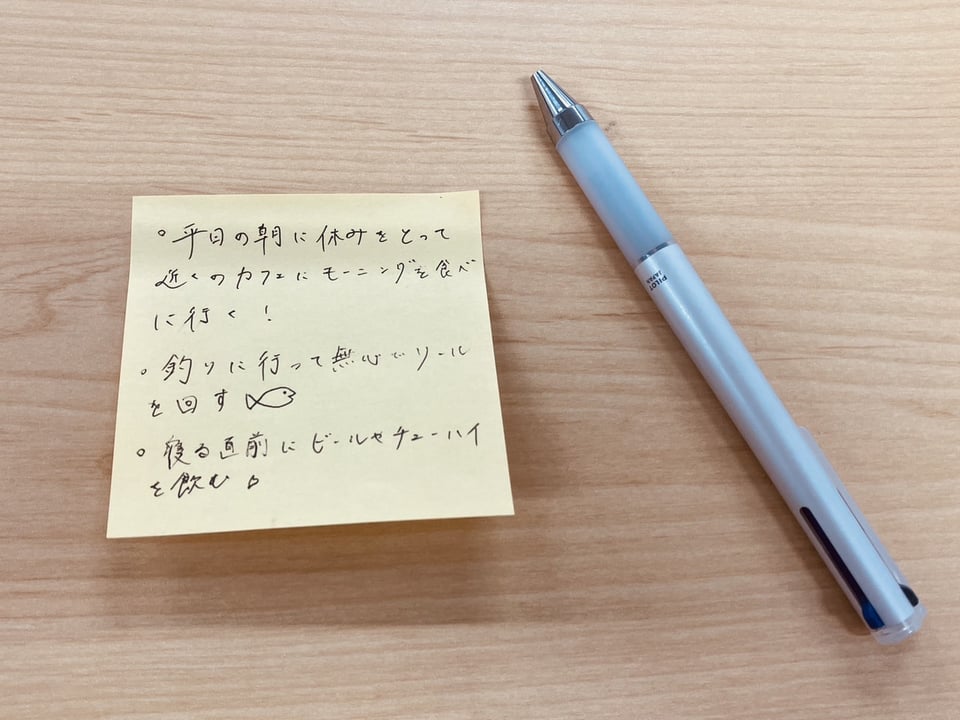 。平日の朝に休みをとって
近くのカフェにモーニングを食べ
に行く！
。釣りに行って無心でリール
を回す
。寝る直前にビールやチューハイ
を飲む♪
PILOT
JAPAN